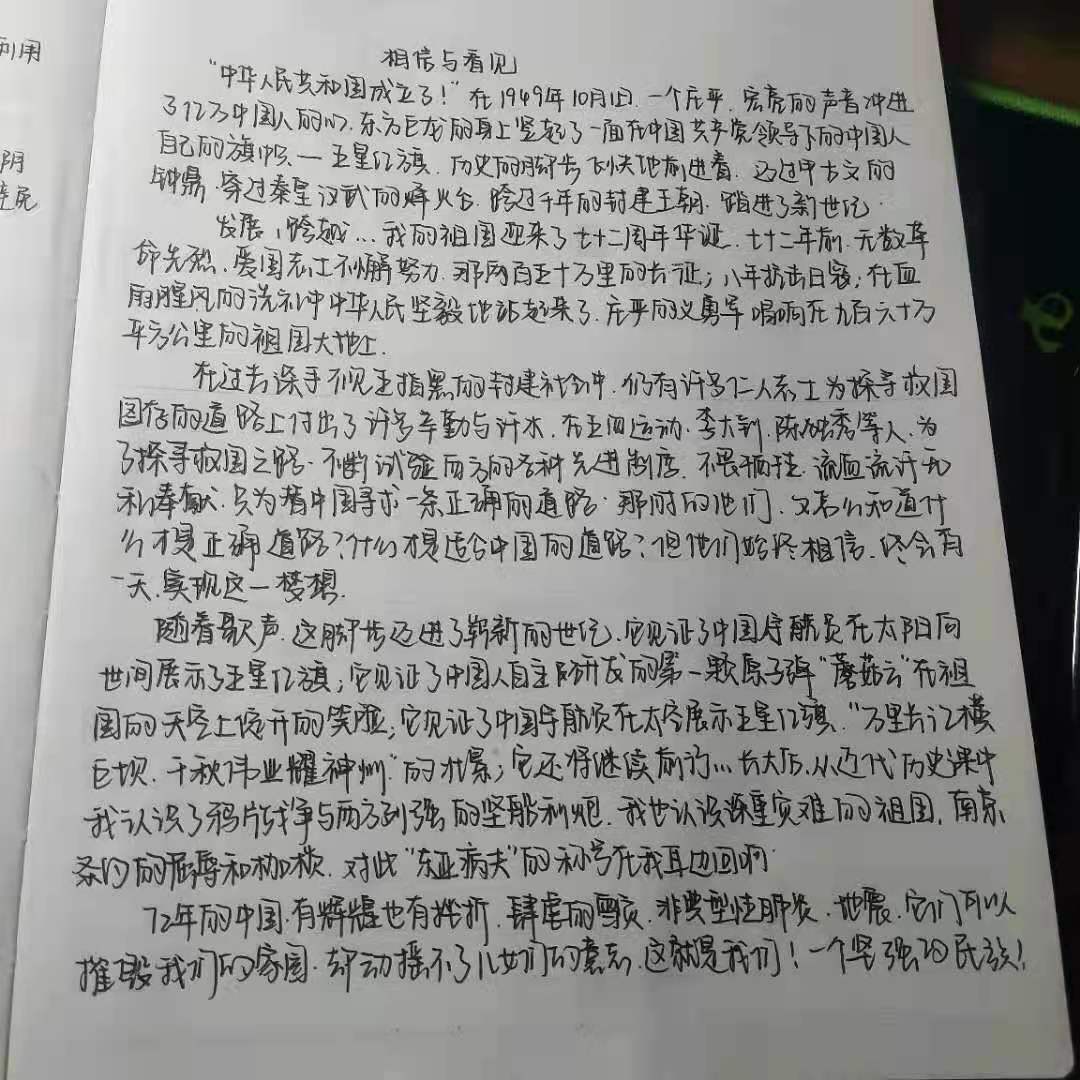 利用
阴
避免
相信与看见
“中华人民共和国成立了！”在1949年10月1日.一个庄严.宏亮的声音冲进
了亿万中国人的心.东方巨龙的身上竖起了一面在中国共产党领导下的中国人
自己的旗帜—五星红旗.历史的脚步飞快地前进着.迈过甲古文的
钟鼎.穿过秦皇汉武的烽火台.跨过千年的封建王朝.踏进了新世纪.
发展,跨越...我的祖国迎来了七十二周年华诞.七十二年前.无数革
命先烈.爱国志士不懈努力.那两万五千里的长征；八年抗击日寇；在血
雨腥风的洗礼中中华人民坚毅地站起来了.庄严的义勇军唱响在九百六十万
平方公里的祖国大地上.
在过去深手不见五指黑的封建社会中.仍有许多仁人志士为探寻救国
图存的道路上付出了许多辛勤与汗水.在五四运动.李大钊.陈独秀等人.为
了探寻救国之路.不断试验西方的各种先进制度.不畏牺牲.流血流汗无
私奉献.只为着中国寻求一条正确的道路.那时的他们.又怎么知道什
么才是正确道路?什么才是适合中国的道路?但他们始终相信.终会有
一天.实现这一梦想.
随着歌声.这脚步迈进了崭新的世纪.它见证了中国宇航员在太阳向
世间展示了五星红旗；它见证了中国人自主研发的第一颗原子弹“蘑菇云”在祖
国的天空上绽开的笑脸；它见证了中国宇航员在太空展示五星红旗.“万里长江横
巨坝.千秋伟业耀神州.”的壮景；它还将继续前行...长大后.从近代历史课中
我认识了鸦片战争与西方列强的坚船利炮.我也认识深重灾难的祖国.南京
条约的屈辱和枷锁.对此“东亚病夫”的称号在我耳边回响.
72年的中国.有辉煌也有挫折.肆虐的雪灾.非典型性肺炎.地震.它们可以
摧毁我们的家园.却动摇不了儿女们的意志.这就是我们！一个坚强的民族！